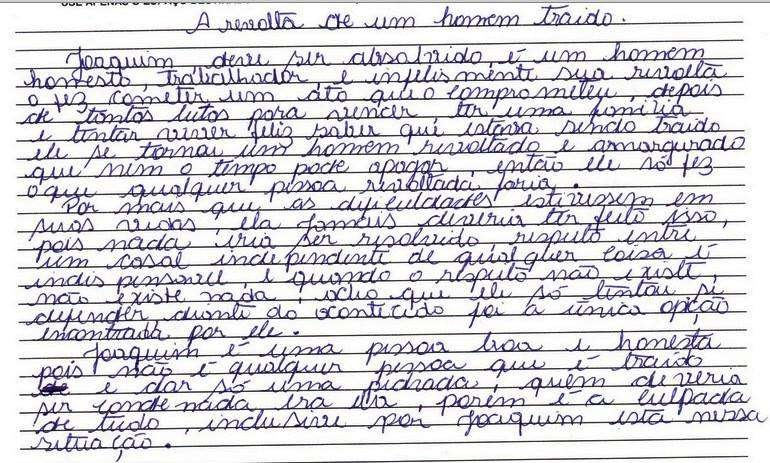 A revolta de um homem traido.
Joaquim, deve ser absolvido, é um homem
honesto, trabalhador, e infelismente sua revolta
o fez cometer um ato que o comprometeu, depois
de tantas lutas para vencer ter uma familia
e tentar viver feliz saber que estava sendo traido
ele se tornou um homem revoltado e amargurado
que nem o tempo pode apagar, então ele só fez
oque qualquer pessoa revoltada faria.
Por mais que as dificuldades estivessem em
suas vidas, ela jamais deveria ter feito isso,
pois nada iria ser resolvido, respeito entre
um casal independente de qualquer coisa é
indispensavel, e quando o respeito não existe,
não existe nada, acho que ele só tentou se
defender, diante do acontecido foi a única opção
encontrada por ele.
Joaquim é uma pessoa boa e honesta
pois não é qualquer pessoa que é traido
e dar só uma pedrada, quem deveria
ser condenada era ela, porém é a culpada
de tudo, inclusive por Joaquim esta nessa
situação.